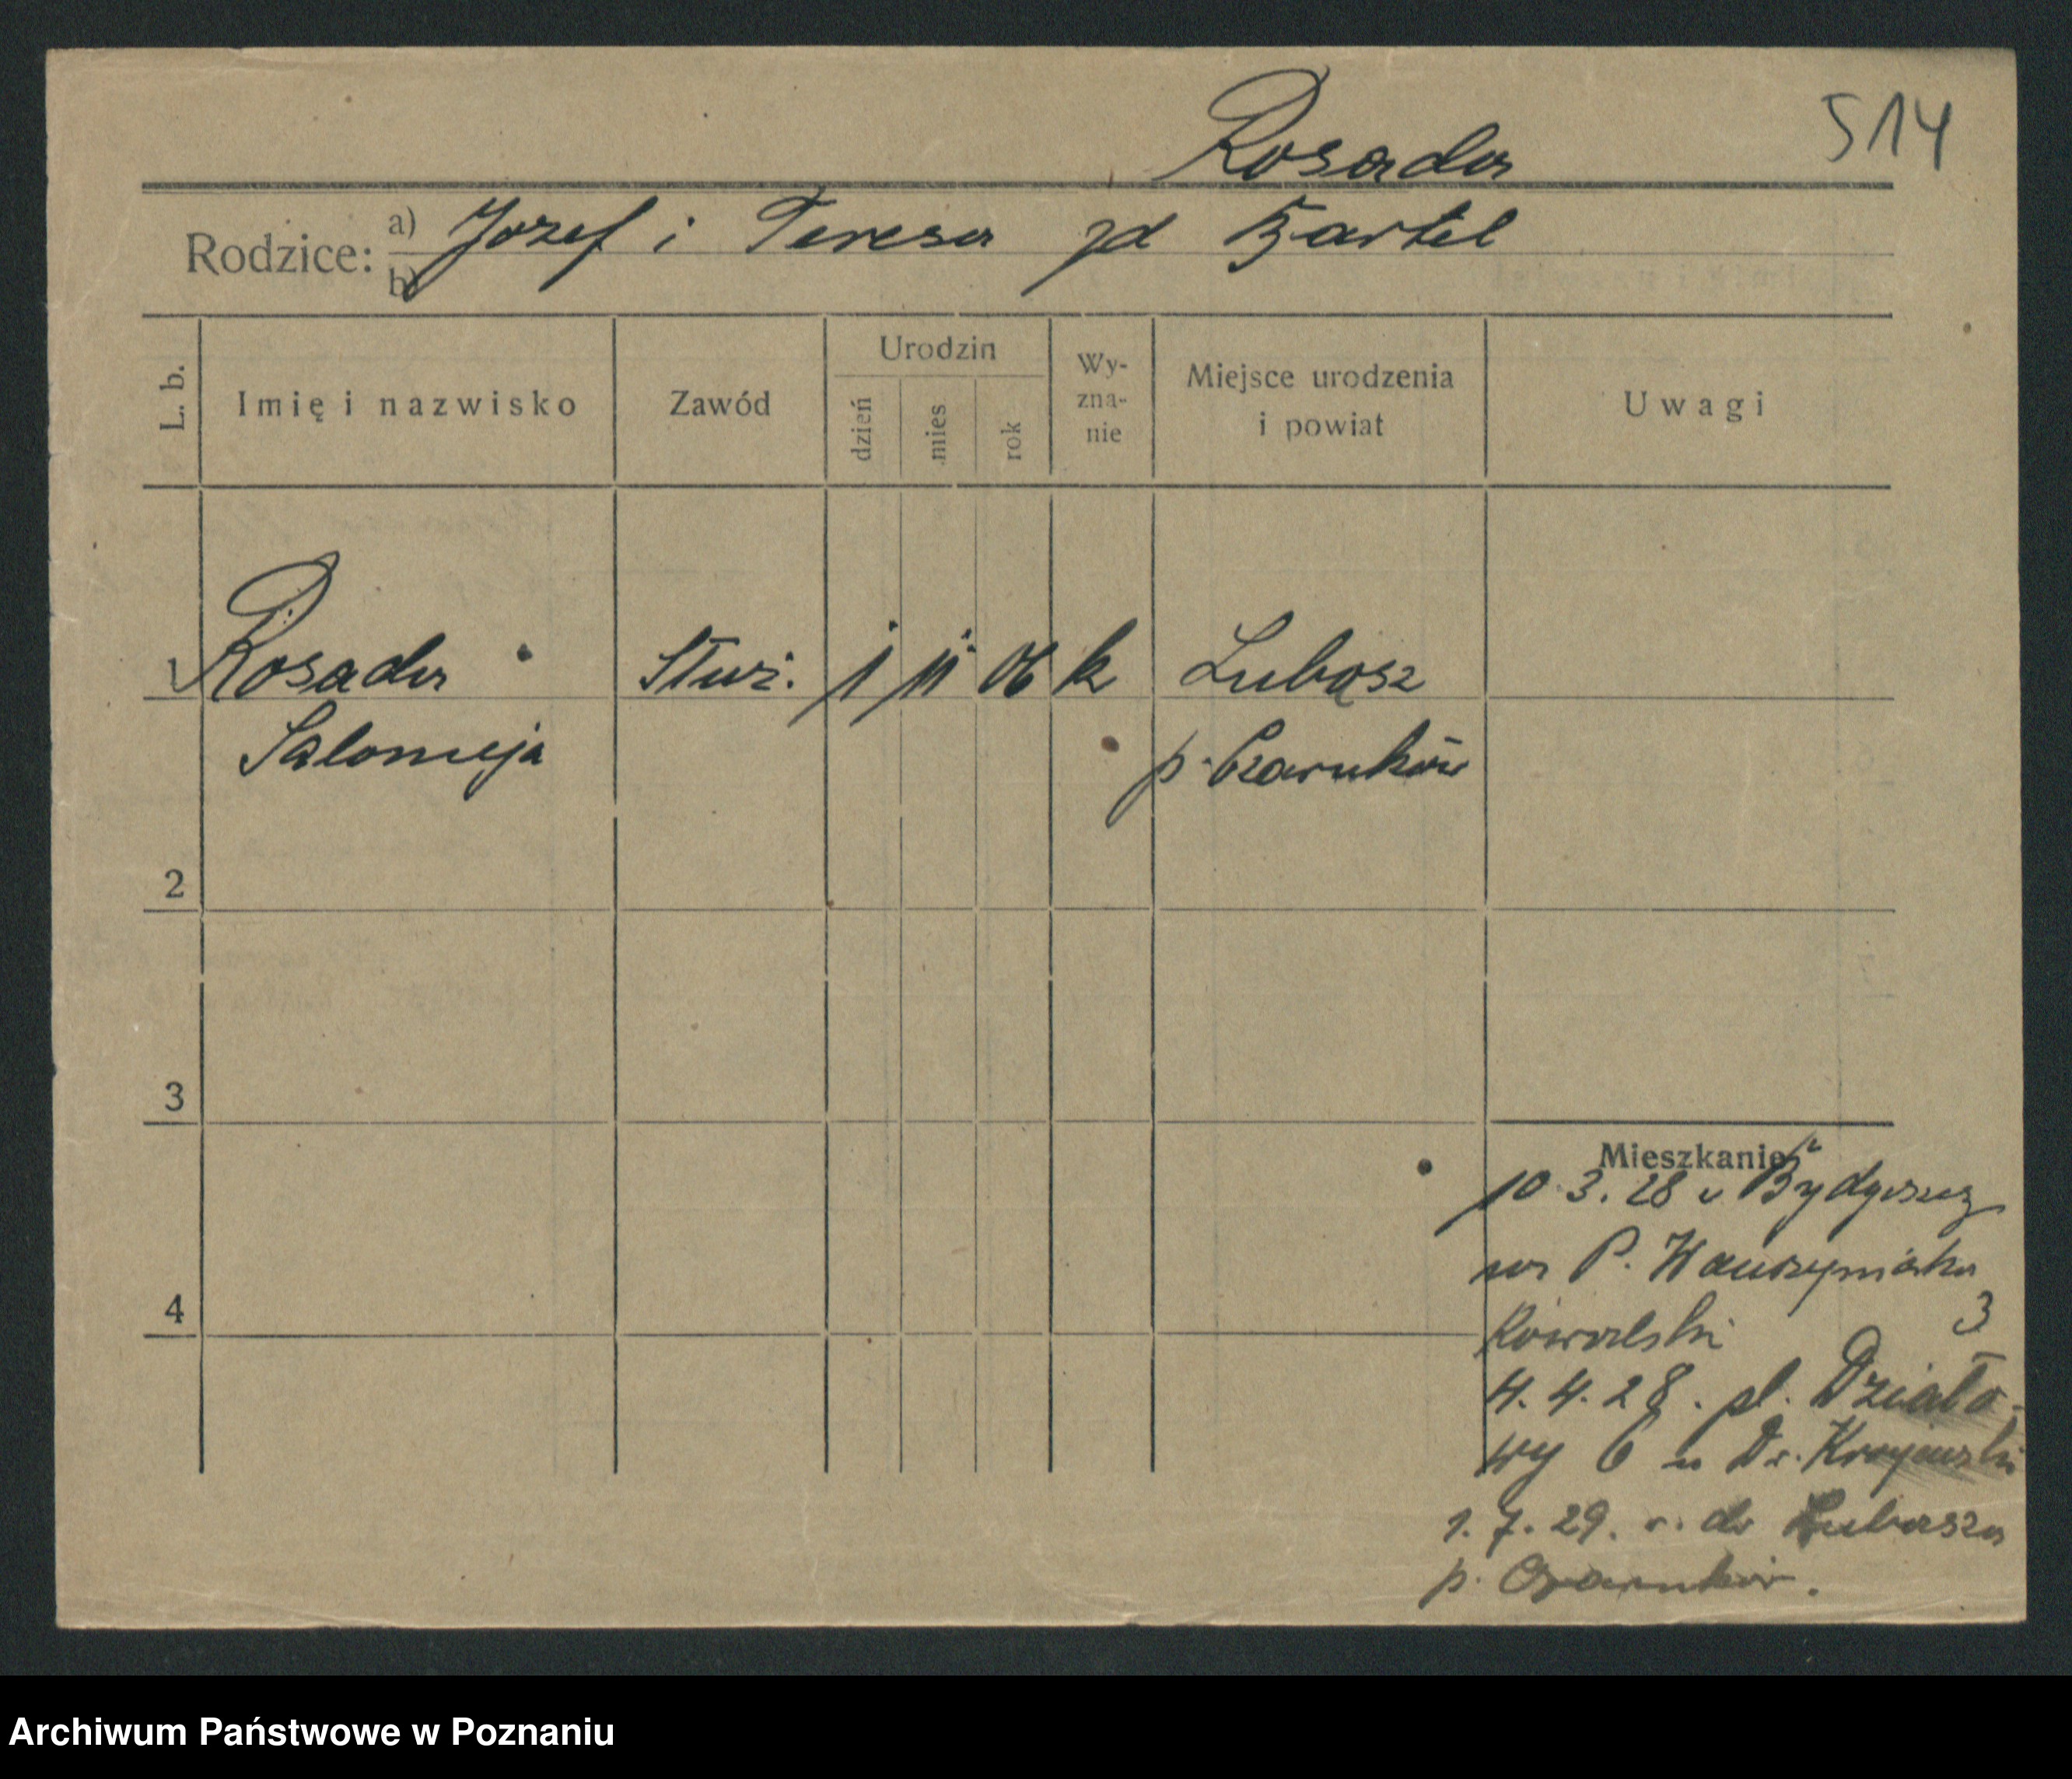 Rosada
514
Rodzice: a) Jozef i Teresa zd Bartel
b)
L. b.
Imię i nazwisko
Zawód
Urodzin
dzień
mies.
rok
Wy-
zna-
nie
Miejsce urodzenia
i powiat
Uwagi
1 Rosada Służ. 1 11 06 k Lubosz
Salomeja p. Czarnków
2
3
4
Mieszkanie
10.3.28 z Bydgoszcz
P. Wawrzyniaka
3
Kowalski
4.4.28. pl. Działo-
wy 6 u Dr. Krajewski
1.7.29. do Lubasza
p. Czarnków.
Archiwum Państwowe w Poznaniu